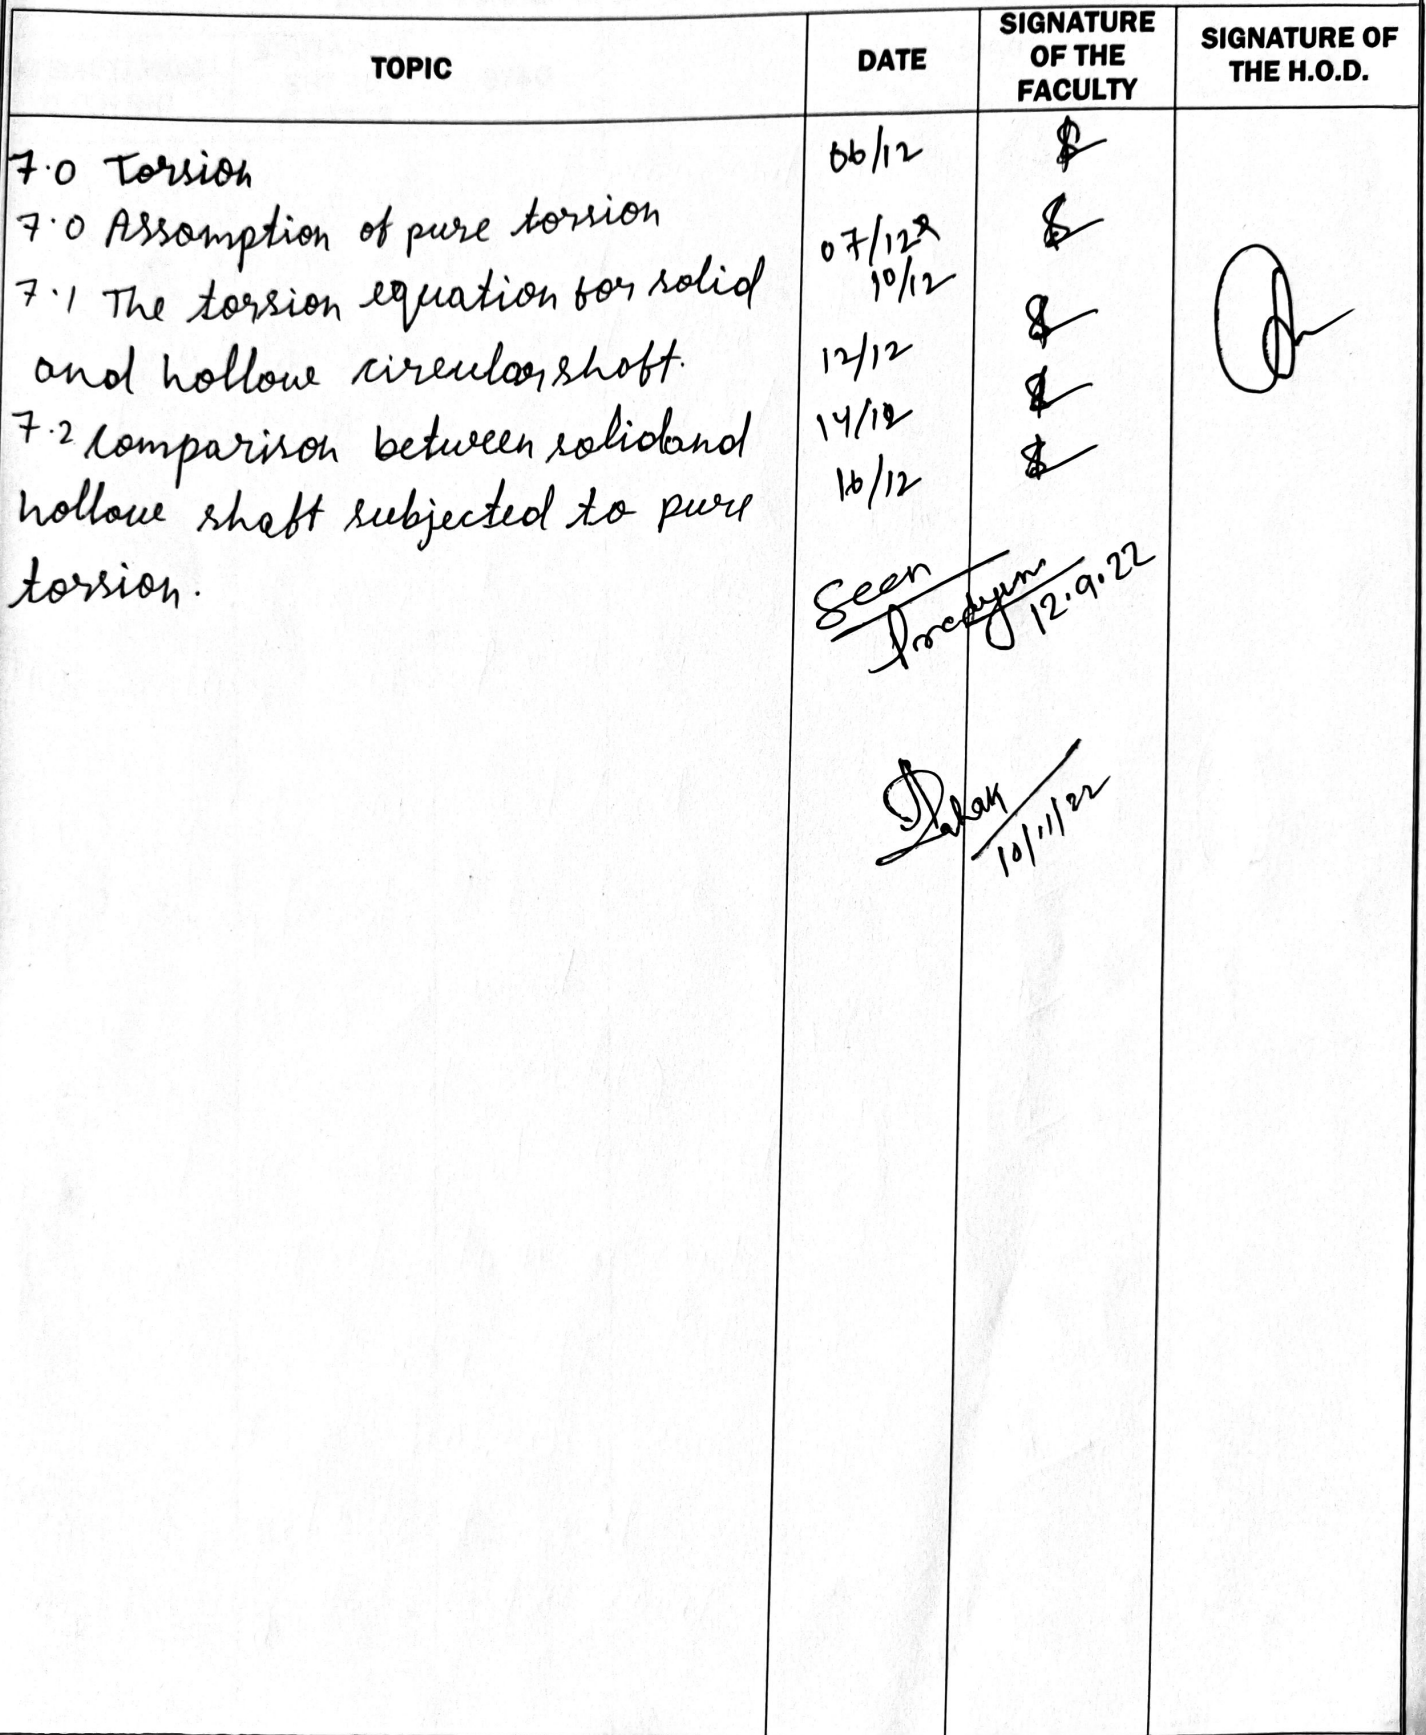 TOPIC
DATE
SIGNATURE
OF THE
FACULTY
SIGNATURE OF
THE H.O.D.
7.0 Torsion
06/12
7.0 Assomption of pure torsion
07/12
10/12
7.1 The torsion equation for solid
and hollow circular shaft.
12/12
7.2 Comparison between solid and
14/12
hollow shaft subjected to pure
16/12
torsion.
Seen
12.9.22
10/11/22